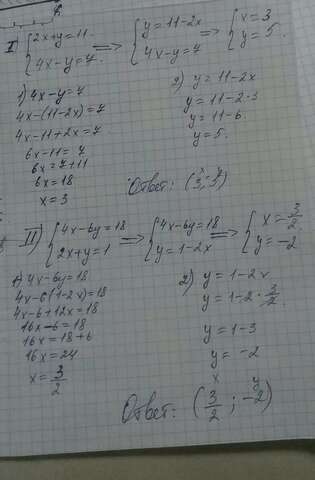 I) {2x+y=11. => {y=11-2x => {x=3
{4x-y=7. {4x-y=7 {y=5.
1) 4x-y=7
4x-(11-2x)=7
4x-11+2x=7
6x-11=7
6x=7+11
6x=18
x=3
2) y=11-2x
y=11-2·3
y=11-6.
y=5.
Ответ: (3; 5)
II) {4x-6y=18 => {4x-6y=18 => {x=3/2
{2x+y=1 {y=1-2x {y=-2
1) 4x-6y=18
4x-6(1-2x)=18
4x-6+12x=18
16x-6=18
16x=18+6
16x=24
x=3/2
2) y=1-2x
y=1-2·3/2.
y=1-3
y=-2
x y
Ответ: (3/2; -2)